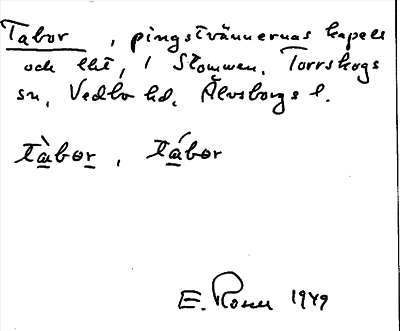 Tabor, pingstvännernas kapell
och lht, i Stommen, Torrskogs
sn, Vedbo hd, Älvsborgs l.
tàbor, tábor
E. Rosén 1949